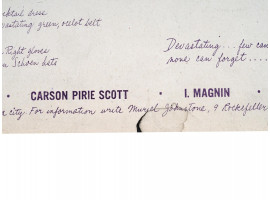 cktail dress
vastating green, ocelot belt
Right gloves
n Schoen hats
Devastating... few can
none can forget....
• CARSON PIRIE SCOTT • I. MAGNIN •
r city. For information write Muriel Johnstone, 9 Rockefeller